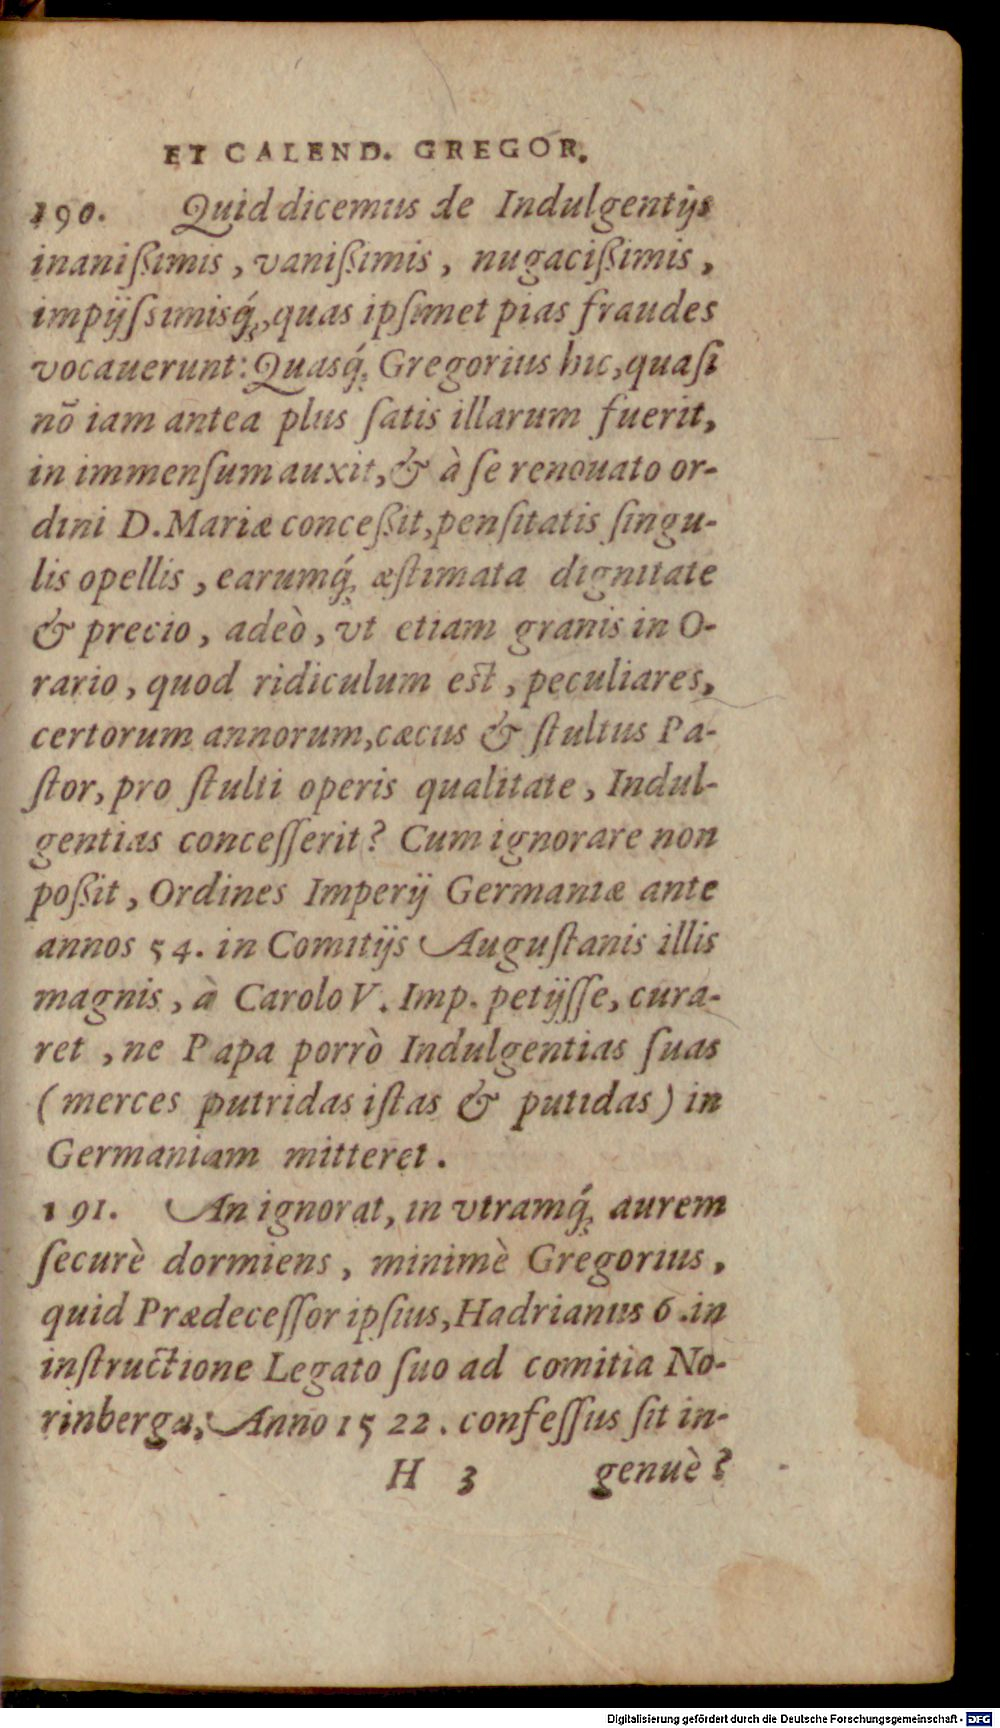 ET CALEND. GREGOR.
190. Quid dicemus de Indulgentijs
inanißimis, vanißimis, nugacißimis,
impijſsimisq́;, quas ipſimet pias fraudes
vocauerunt: Quasq́; Gregorius hic, quaſi
nō iam antea plus ſatis illarum fuerit,
in immenſum auxit, & à ſe renouato or-
dini D. Mariæ conceßit, penſitatis ſingu-
lis opellis, earumq́; æſtimata dignitate
& precio, adeò, vt etiam granis in O-
rario, quod ridiculum est, peculiares,
certorum annorum, cæcus & ſtultus Pa-
ſtor, pro ſtulti operis qualitate, Indul-
gentias conceſſerit? Cum ignorare non
poßit, Ordines Imperij Germaniæ ante
annos 54. in Comitijs Auguſtanis illis
magnis, à Carolo V. Imp. petijſſe, cura-
ret, ne Papa porrò Indulgentias ſuas
(merces putridas iſtas & putidas) in
Germaniam mitteret.
191. An ignorat, in vtramq́; aurem
ſecurè dormiens, minimè Gregorius,
quid Prædeceſſor ipſius, Hadrianus 6. in
inſtructione Legato ſuo ad comitia No-
rinberga, Anno 1522. confeſſus ſit in-
H 3 genuè?
Digitalisierung gefördert durch die Deutsche Forschungsgemeinschaft - DFG